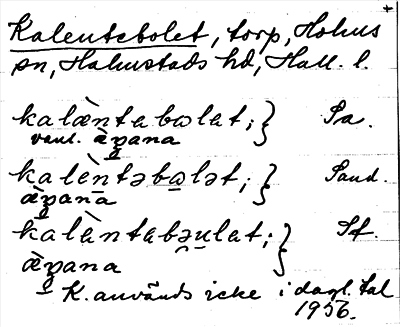 Kalentebolet, torp, Holms
sn, Halmstads hd, Hall. l.
kalæ̀ntabɷlet; } Sa.
vanl. æ̀pana
kalèntəbɷlət; } Sand.
æ̀pana
kalàntabəulat; } Sf.
æ̀pana
K. används icke i dagl. tal
1956.